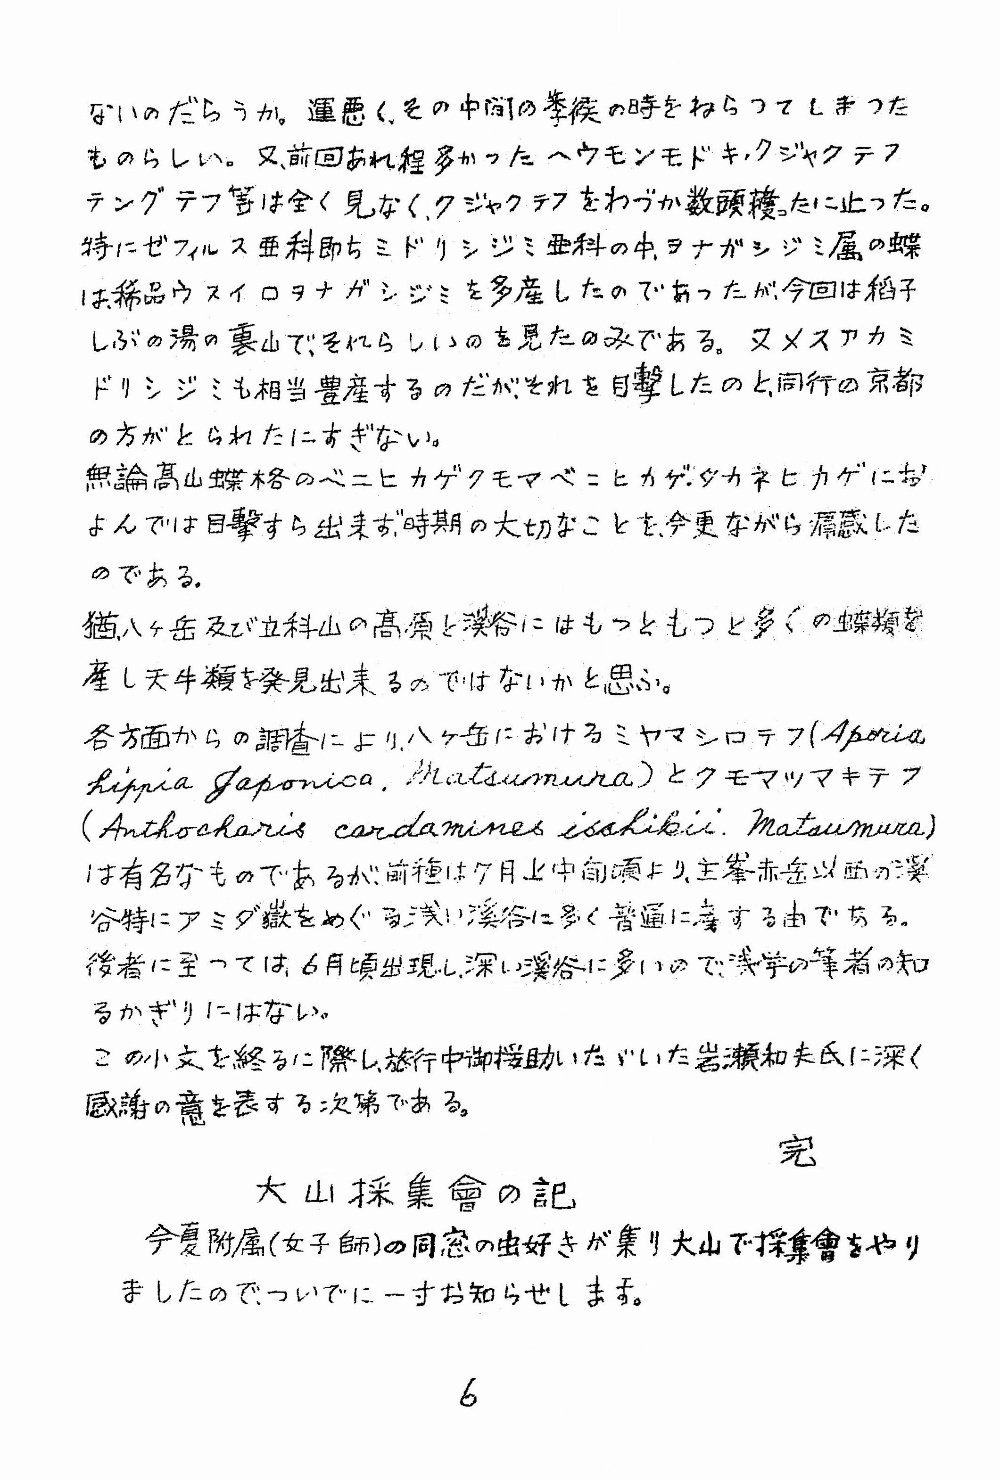 ないのだらうか。運悪く、その中間の季候の時をねらつてしまつた
ものらしい。又、前回あれ程多かつたヘウモンモドキ、クジャクテフ
テングテフ等は全く見なく、クジャクテフをわづか数頭穫つたに止つた。
特にゼフィルス亜科即ちミドリシジミ亜科の中、ヲナガシジミ属の蝶
は、稀品ウスイロヲナガシジミを多産したのであつたが、今回は稻子
しぶの湯の裏山で、それらしいのを見たのみである。又メスアカミ
ドリシジミも相当豊産するのだが、それを目撃したのと、同行の京都
の方がとられたにすぎない。
無論高山蝶格のベニヒカゲクモマベニヒカゲ、タカネヒカゲにお
よんでは目撃すら出来ず、時期の大切なことを、今更ながら痛感した
のである。
猶、八ヶ岳及び立科山の高原と渓谷にはもつともつと多くの蝶類を
産し天牛類を発見出来るのではないかと思ふ。
各方面からの調査により、八ヶ岳におけるミヤマシロテフ(Aporia
hippia Japonica. Matsumura)とクモマツマキテフ
(Anthocharis cardamines isshikii. Matsumura)
は有名なものであるが、前種は7月上中旬頃より、主峯赤岳以西の渓
谷特にアミダ嶽をめぐる浅い渓谷に多く普通に産する由である。
後者に至つては、6月頃出現し、深い渓谷に多いので、浅学の筆者の知
るかぎりにはない。
この小文を終るに際し、旅行中御援助いたゞいた岩瀬和夫氏に深く
感謝の意を表する次第である。
完
大山採集會の記
今夏附属(女子師)の同窓の虫好きが集り大山で採集會をやり
ましたので、ついでに一寸お知らせします。
6